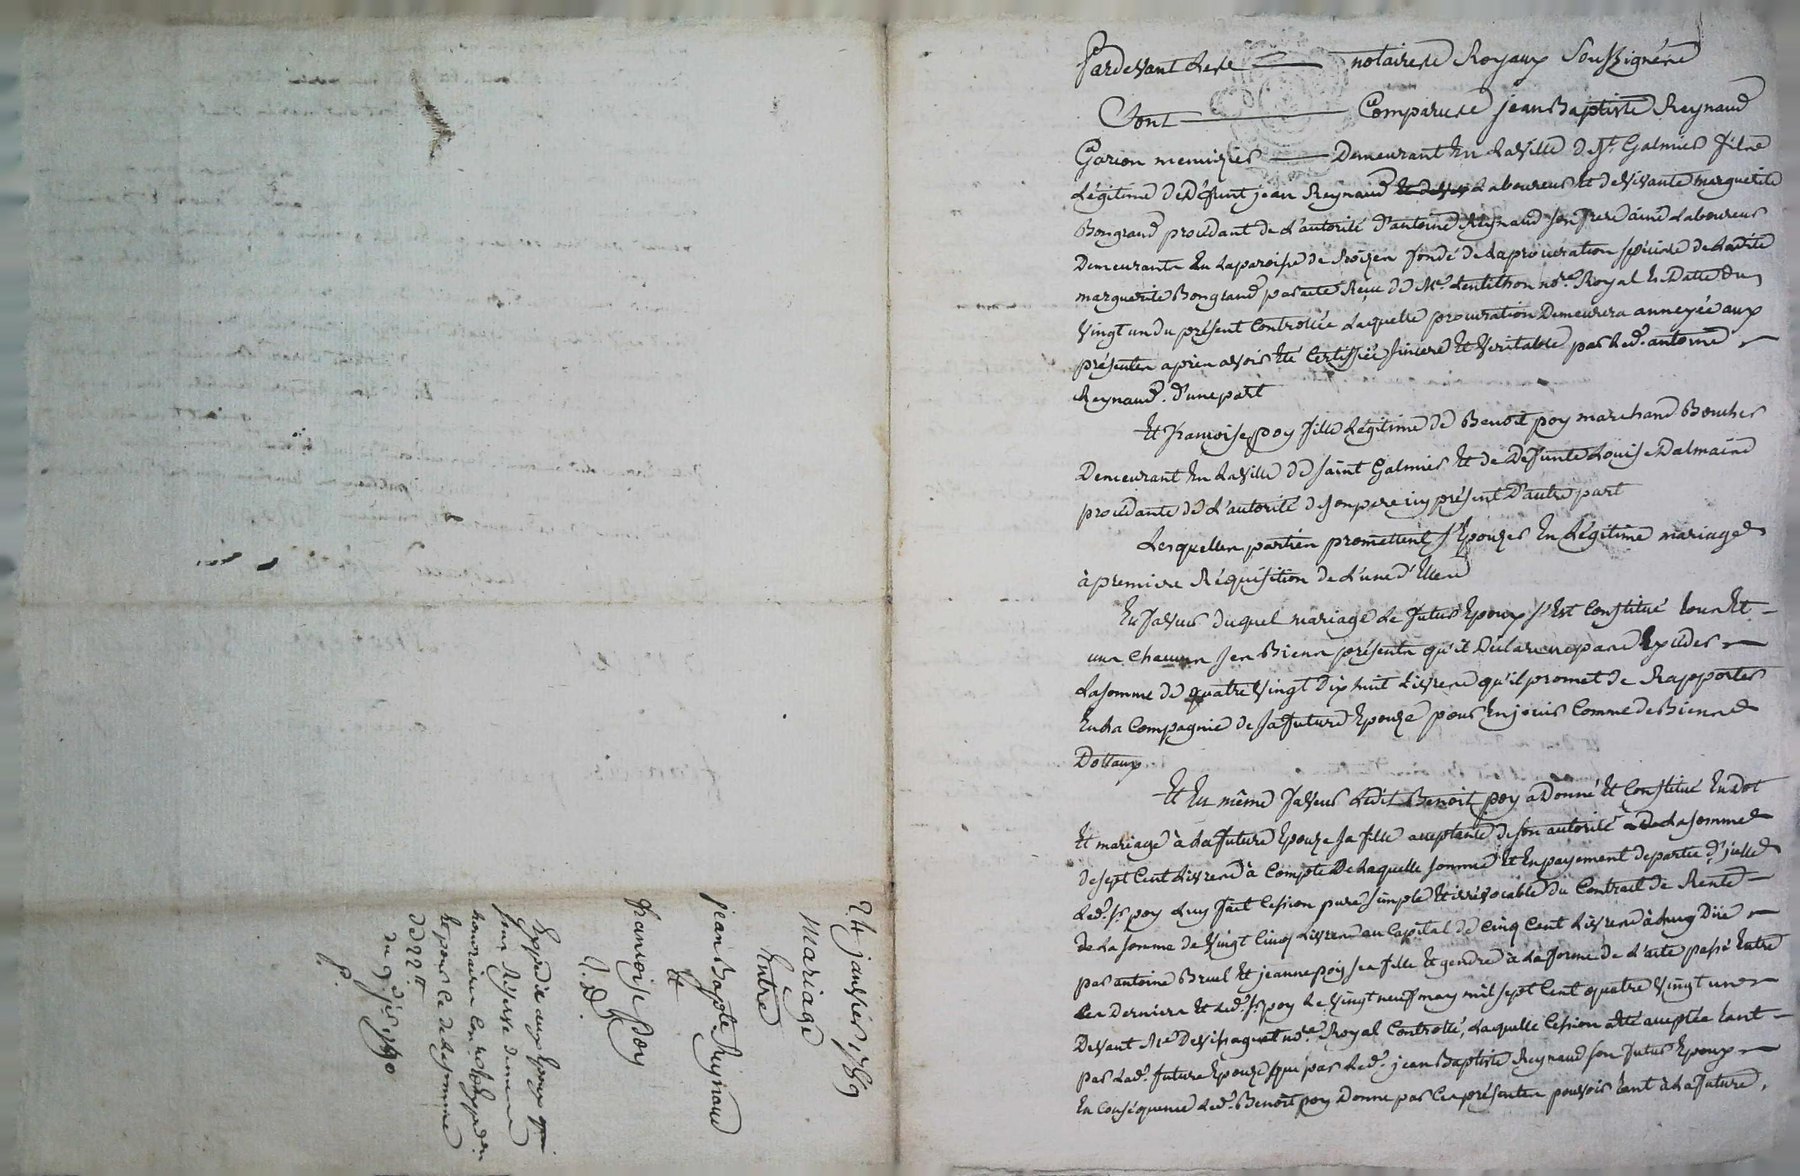 Pardevant Les notaires Royaux Soussignés
Sont Comparus jean Baptiste Reynaud
Garçon menuizier Demeurant En La Ville de St. Galmier fils
Légitime de Défunt jean Reynaud Laboureur Et de Vivante marguerite
Bongrand procédant de L'autorité d'antoine Reynaud son frere ainé Laboureur
Demeurants En La paroisse de fondé de La procuration spéciale de Ladite
marguerite Bongrand par acte Reçu de Me. Lentilhon nore. Royal En Datte du
Vingt un du présent Controllée Laquelle procuration Demeurera annexée aux
présentes après avoir Eté Certiffiée sincere Et Veritable par Led. antoine
Reynaud. D'une part
Et françoise poy fille Légitime de Benoit poy marchand Boucher
Demeurant En La Ville de saint Galmier Et de Defunte Louise Dalmaine
procédante de L'autorité de son pere icy présent D'autre part
Lesquelles parties promettent s'Epouzer En Légitime mariage
à premiere Réquisition de L'une d'Elles
En faveur duquel mariage Le futur Epoux s'Est Constitué tous Et
uns Chacuns ses Biens présents qu'il Déclare ne pas Exceder
La somme de quatre Vingt dix huit Livres qu'il promet de Rapporter
En La Compagnie de sa future Epouze pour En jouir Comme de Biens
Dottaux
Et En même faveur Ledit Benoit poy a Donné Et Constitué En Dot
Et mariage à La future Epouze sa fille acceptante de son autorité La somme
de sept Cent Livres à Compte De Laquelle somme Et En payement de partie d'jcelle
Led. sr. poy Luy fait Cession pure simple Et irrévocable du Contrat de Rente
de La somme de Vingt Cinq Livres au Capital de Cinq Cent Livres à Luy Düe
par antoine Breul Et jeanne poy sa fille Et gendre à La forme de L'acte passé Entre
Les Derniers Et Led. sr. poy Le Vingt neuf may mil sept Cent quatre Vingt un
Devant Me. nore. Royal Controllé, Laquelle Cession a Eté acceptée tant
par Lad. future Epouze que par Led. jean Baptiste Reynaud son futur Epoux
En Conséquence Led. Benoit poy Donne par Ces présentes pouvoir tant à La future
24 janvier 1789
Mariage
Entre
jean Bapte. Reynaud
Et
françoise Poy
Expedié aux Epoux
sous Réserve de mes
honoraires
Et pour Ce de La somme
de 22 tt
du 9 1790